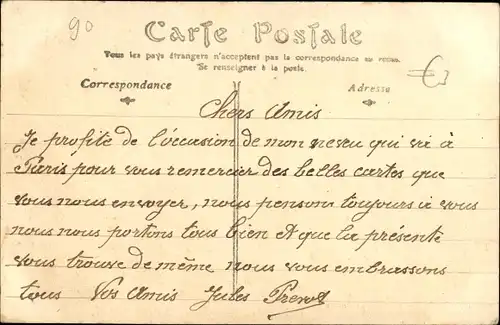 90
Carte Postale
Tous les pays étrangers n'acceptent pas la correspondance au recto.
Se renseigner à la poste.
Correspondance
Adresse
€3
Chers Amis
Je profite de l'occasion de mon neveu qui va à
Paris pour vous remercier des belles cartes que
vous nous envoyer, nous pensons toujours à vous
nous nous portons tous bien et que la présente
vous trouve de même nous vous embrassons
tous Vos Amis Jules Prevot